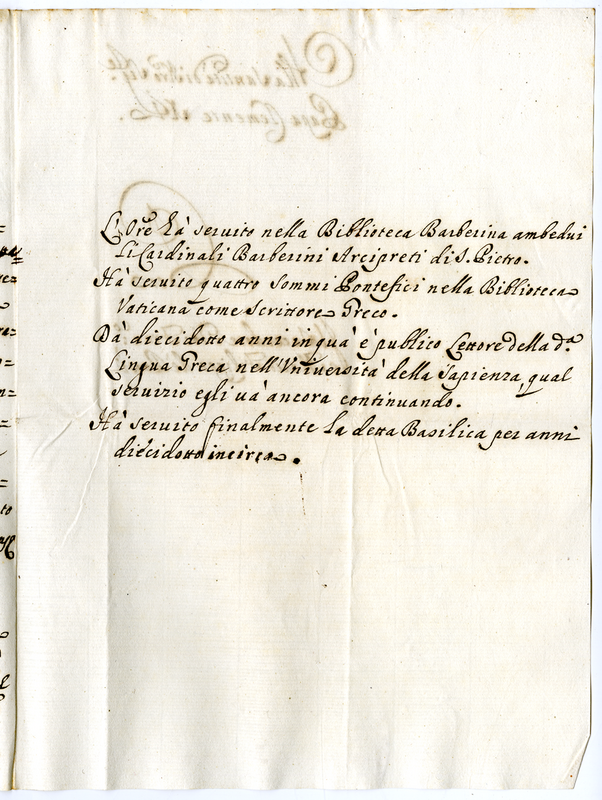 L'Ore hà seruito nella Biblioteca Barberina ambedui
li Cardinali Barberini Arcipreti di S. Pietro.
Hà seruito quattro Sommi Pontefici nella Biblioteca
Vaticana come Scrittore Greco.
Dà diecidotto anni in quà è publico Lettore della da
Lingua Greca nell'Vniuersità della Sapienza, qual
seruizio egli uà ancora continuando.
Hà seruito finalmente la detta Basilica per anni
diecidotto incirca.